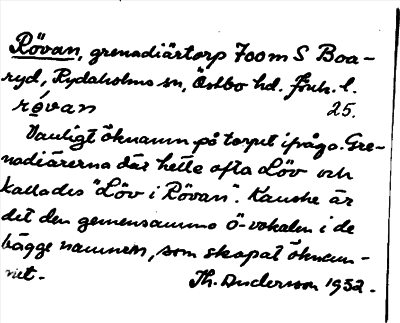 Rövan, grenadiärtorp 700 m S Boa-
ryd, Rydaholms sn, Östbo hd. Jönk. l.
rövan 25.
Vanligt öknamn på torpet ifråga. Gre-
nadiärerna där hette ofta Löv och
kallades "Löv i Rövan". Kanske är
det den gemensamma ö-vokalen i de
bägge namnen, som skapat öknam-
net. Th. Anderson 1932.